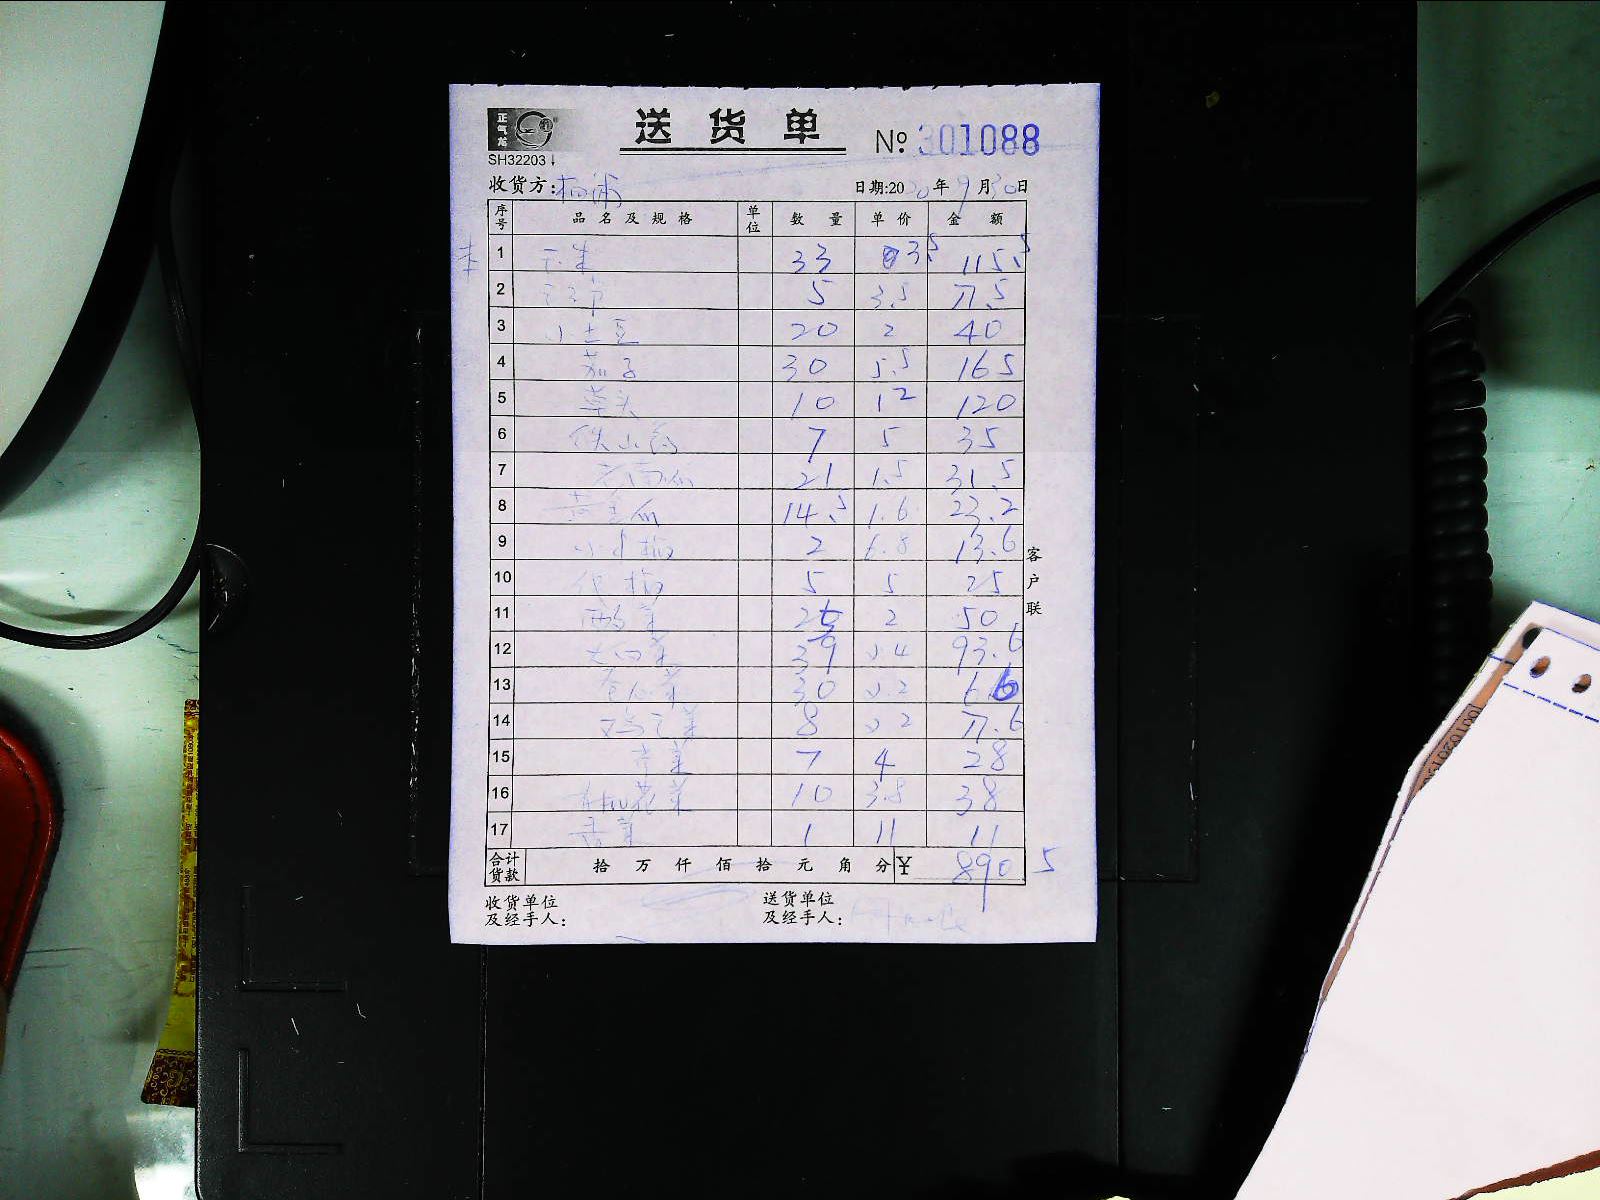 正气龙
送货单
№ 301088
SH32203↓
收货方:
日期:2020年9月30日
序号 品名及规格 单位 数量 单价 金额
1 玉米 33 3.5 115.5
2 5 3.5 17.5
3 小土豆 20 2 40
4 茄子 30 5.5 165
5 草头 10 12 120
6 铁山药 7 5 35
7 老南瓜 21 1.5 31.5
8 黄金瓜 14.5 1.6 23.2
9 2 6.8 13.6
10 5 5 25
11 25 2 50
12 大白菜 39 2.4 93.6
13 卷心菜 30 2.2 66
14 8 2.2 17.6
15 7 4 28
16 有机花菜 10 3.8 38
17 1 11 11
合计货款 拾 万 仟 佰 拾 元 角 分 ¥ 890 5
客户联
收货单位及经手人:
送货单位及经手人: